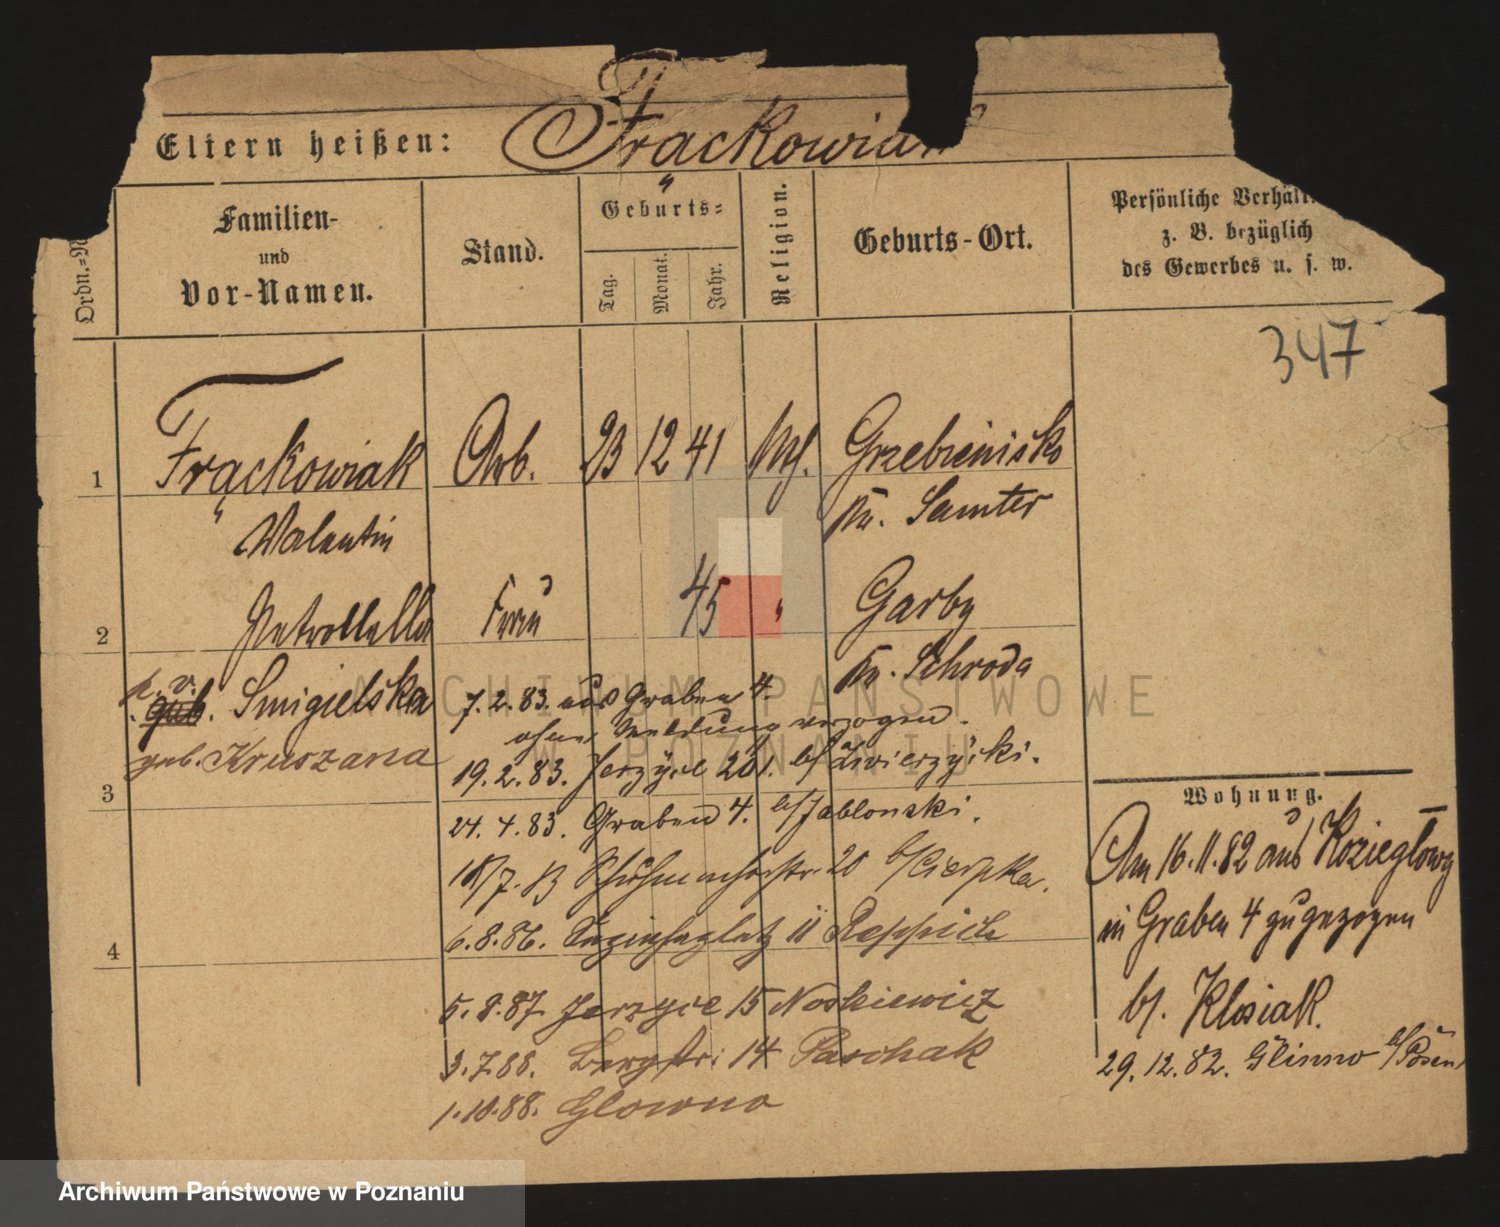 Eltern heißen: Frąckowiak
Ordn.=N
Familien-
und
Vor-Namen.
Stand.
Geburts=
Tag.
Monat.
Jahr.
Religion.
Geburts-Ort.
Persönliche Verhält
z. B. bezüglich
des Gewerbes u. s. w.
347
1 Frąckowiak Arb. 23 12 41 Grzebienisko
Valentin Kr. Samter
2 Petrollella Frau 45 " Garby
Kr. Schroda
p. v.
geb. Smigielska
geb. Kruszana
7.2.83. aus Graben 4.
ohne Meldung verzogen.
3
19.2.83. Jerzyce 201. b/ Zwierzycki.
24.4.83. Graben 4. b/ Jablonski.
18/7. 83 20 b/ Cierpka.
4
6.8.86. 11
5.8.87. Jerzyce 15 Noskiewicz
3.7.88. Bergstr: 14 Paschak
1.10.88. Glowno
Wohnung.
Am 16.11.82 aus Koziegłowy
in Graben 4 zugezogen
b/. Klosiak.
29.12.82. Glinno b/Posen
ARCHIWUM PAŃSTWOWE
W POZNANIU
Archiwum Państwowe w Poznaniu